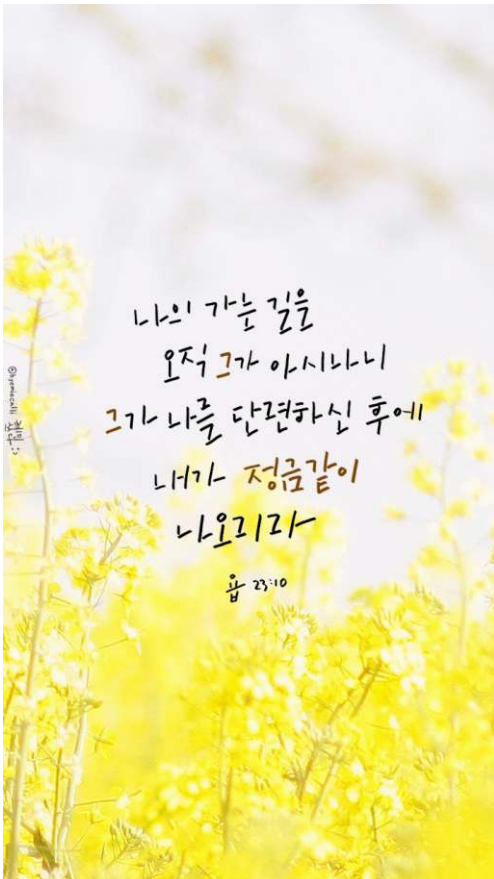 나의 가는 길을
오직 그가 아시나니
그가 나를 단련하신 후에
내가 정금같이
나오리라
욥 23:10
@hyemincalli